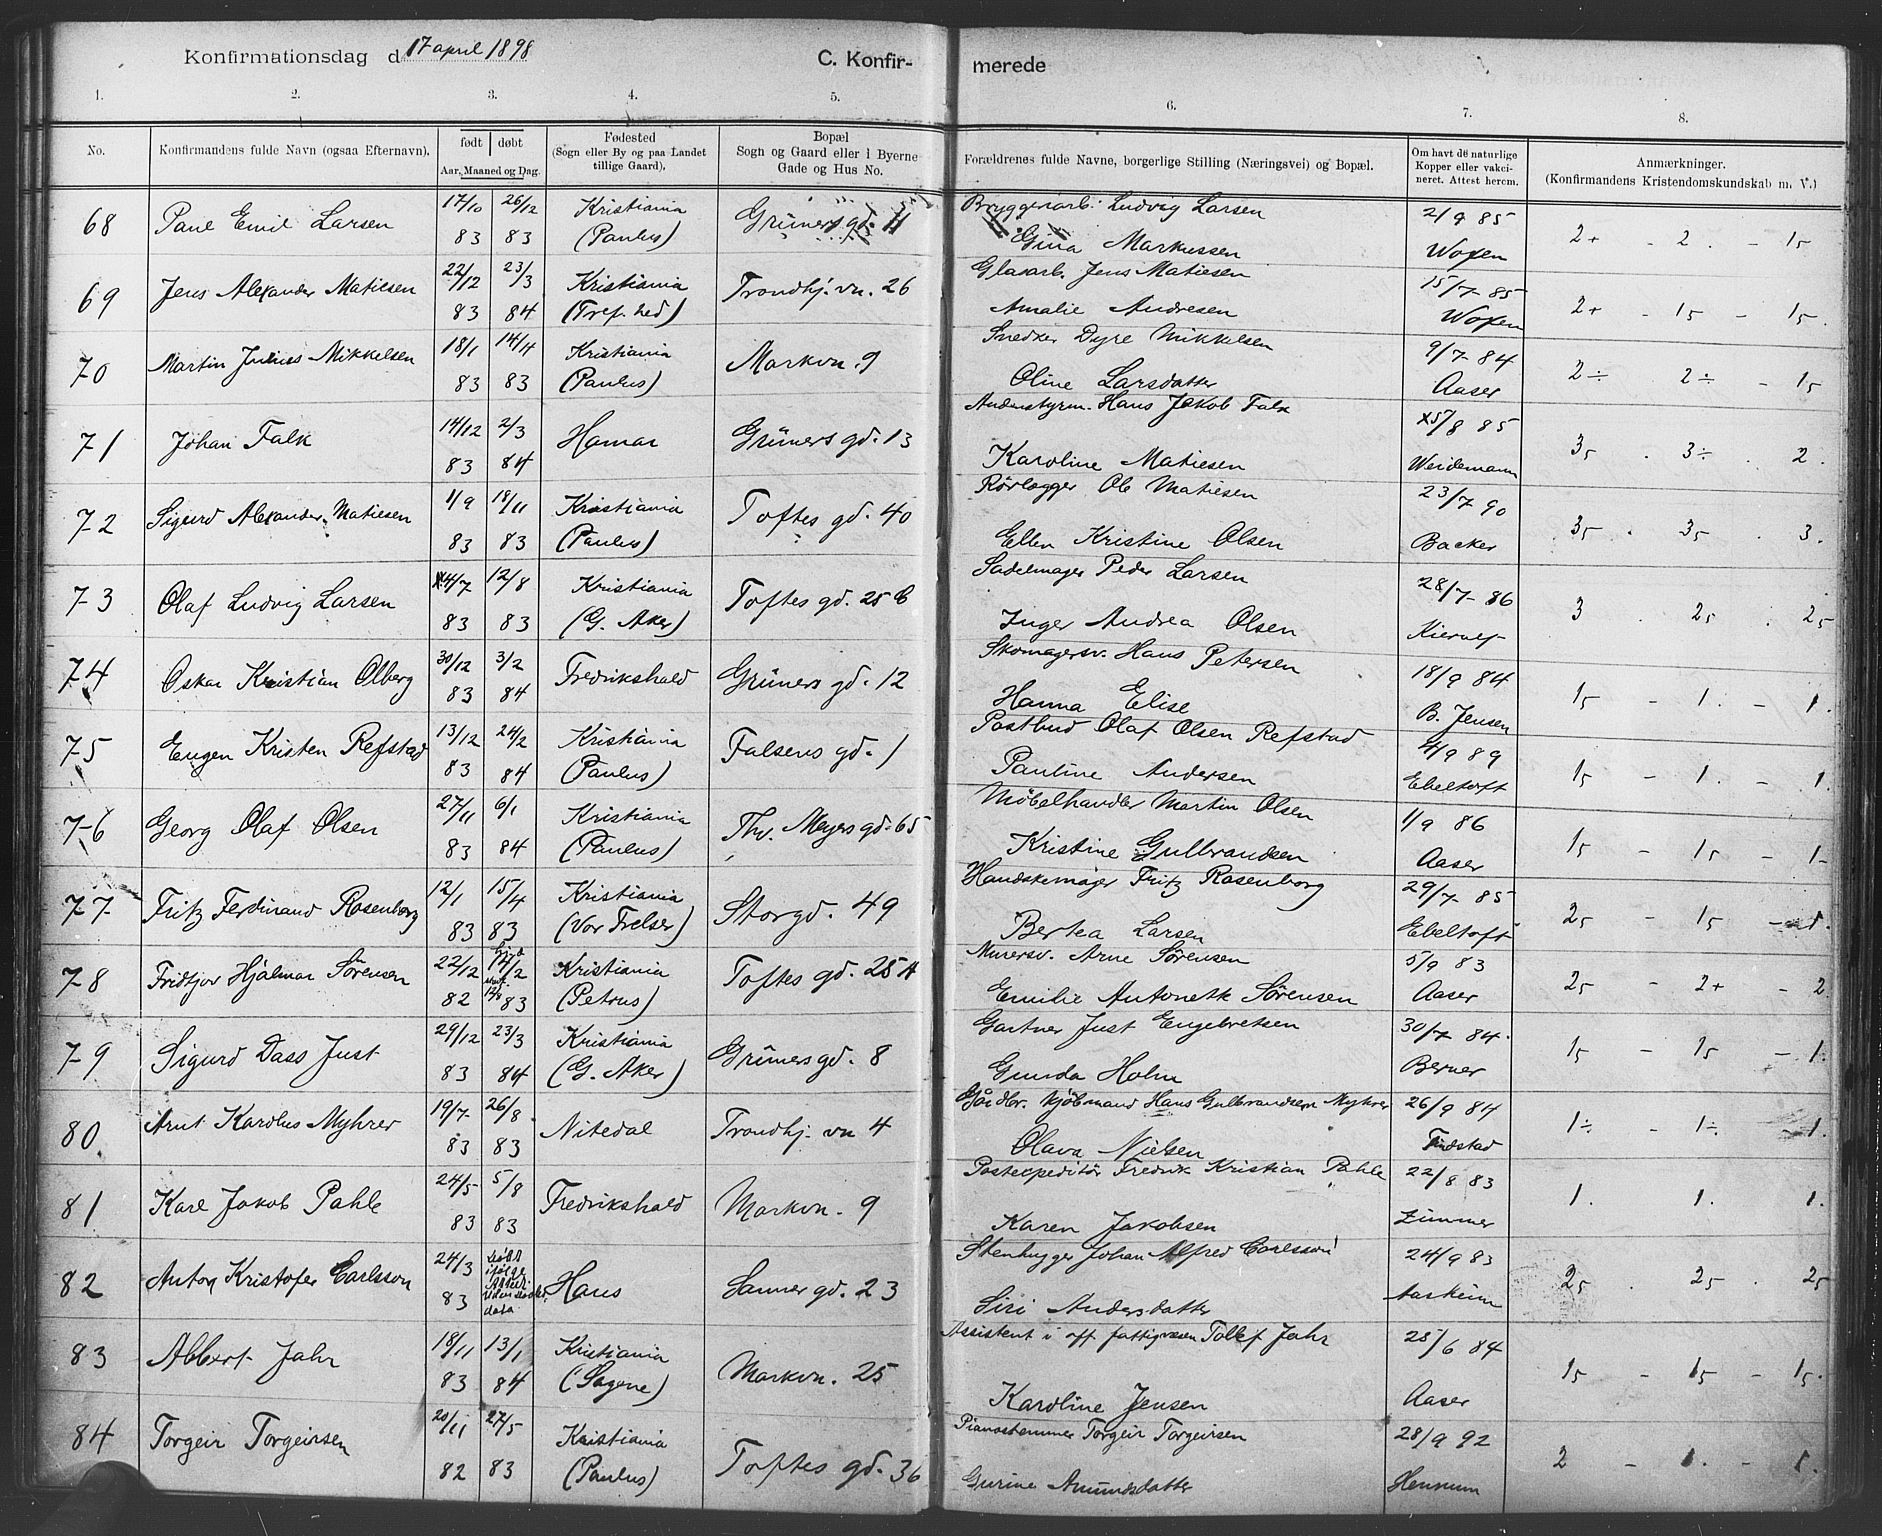 Konfirmationsdag d. 17 april 1898 C. Konfir- merede
1. 2. 3. 4. 5. 6. 7. 8.
No. Konfirmandens fulde Navn (ogsaa Efternavn). født døbt Aar, Maaned og Dag. Fødested (Sogn eller By og paa Landet tillige Gaard). Bopæl Sogn og Gaard eller i Byerne Gade og Hus No. Forældrenes fulde Navne, borgerlige Stilling (Næringsvei) og Bopæl. Om havt de naturlige Kopper eller vakcineret. Attest herom. Anmærkninger. (Konfirmandens Kristendomskundskab m. V.)
68 Paul Emil Larsen 17/10 83 26/12 83 Kristiania (Paulus) Grüners gd. 11 Bryggeriarb. Ludvig Larsen
Gina Markussen 2/9 85 Woxen 2+ - 2. - 15
69 Jens Alexander Matiesen 22/12 83 23/3 84 Kristiania (Tref.hed) Trondhj. vn. 26 Glasarb. Jens Matiesen
Amalie Andresen 15/7 85 Woxen 2+ - 15 - 15.
70 Martin Julius Mikkelsen 18/1 83 14/4 83 Kristiania (Paulus) Markvn. 9 Snedker Dyre Mikkelsen
Oline Larsdatter 9/7 84 Aaser 2÷ . 2÷ - 15
71 Johan Falk 14/12 83 2/3 84 Hamar Grüners gd. 13 Andenstyrm. Hans Jakob Falk
Karoline Matiesen 5/8 85 Weidemann 35 . 3÷ . 2.
72 Sigurd Alexander Matiesen 1/9 83 18/11 83 Kristiania (Paulus) Toftes gd. 40 Rørlægger Ole Matiesen
Ellen Kristine Olsen 23/7 90 Backer 35 . 35 . 3.
73 Olaf Ludvig Larsen 4/7 83 12/8 83 Kristiania (G. Aker) Toftes gd. 25 b Sadelmager Peder Larsen
Inger Andrea Olsen 28/7 86 Kierulf 3 . 25 . 25
74 Oskar Kristian Olberg 30/12 83 3/2 84 Fredrikshald Grüners gd. 12 Skomagersv. Hans Petersen
Hanna Elise 18/9 84 B. Jensen 15 - 1. - 1.
75 Eugen Kristen Refstad 13/12 83 24/2 84 Kristiania (Paulus) Falsens gd. 1 Postbud Olaf Olsen Refstad
Pauline Andersen 4/9 89 Ebeltoft 15 - 1. - 1
76 Georg Olaf Olsen 27/11 83 6/1 84 Kristiania (Paulus) Thv. Meyers gd. 65 Møbelhandler Martin Olsen
Kristine Gulbrandsen 1/9 86 Aaser 15 - 15 - 1-
77 Fritz Ferdinand Rosenborg 12/1 83 15/4 83 Kristiania (Vor Frelser) Storgd. 49 Handskemager Fritz Rosenborg
Bertea Larsen 29/7 85 Ebeltoft 25 - 15 - 1.
78 Fridtjov Hjalmar Sørensen 22/12 82 /2 83 Kristiania (Petrus) Toftes gd. 25 A Murersv. Arne Sørensen
Emilie Antonette Sørensen 5/9 83 Aaser 25 - 2+ - 2
79 Sigurd Dass Just 29/12 83 23/3 84 Kristiania (G. Aker) Grüners gd. 8 Gartner Just Engebretsen
Gunda Holm 30/7 84. Berner 15 - 15 - 1.
80. Arnt Karolus Myhrer 19/7 83 26/8 83 Nitedal Trondhj. vn 4 Gårdbr. Kjøbmand Hans Gulbrandsen Myhrer
Olava Nielsen 26/9 84 1÷ - 1÷ - 1.
81 Karl Jakob Pahle 24/5 83 5/8 83 Fredrikshald Markvn. 9 Postexpeditør Fredrik Kristian Pahle
Karen Jakobsen 22/8 83 Zimmer 1. 1. 1.
82 Anton Kristofer Carlsson 24/3 83 døbt ifølge Hans Sannergd. 23 Stenhugger Johan Alfred Carlsson
Sisi Andersdatter 24/9 83 Aasheim 25 . 25 . 25
83 Albert Jahr 18/11 83 13/1 84 Kristiania (Sagene) Markvn. 25 Assistent i off. fattigvæsen Tollef Jahr
Karoline Jensen 25/6 84 Aaser 15 - 15 - 15.
84 Torgeir Torgeirsen 20/11 82 27/5 83 Kristiania (Paulus) Toftes gd. 36 Pianostemmer Torgeir Torgeirsen
Gurine Amundsdatter 28/9 92 Hennum 2 - 1. - 1.